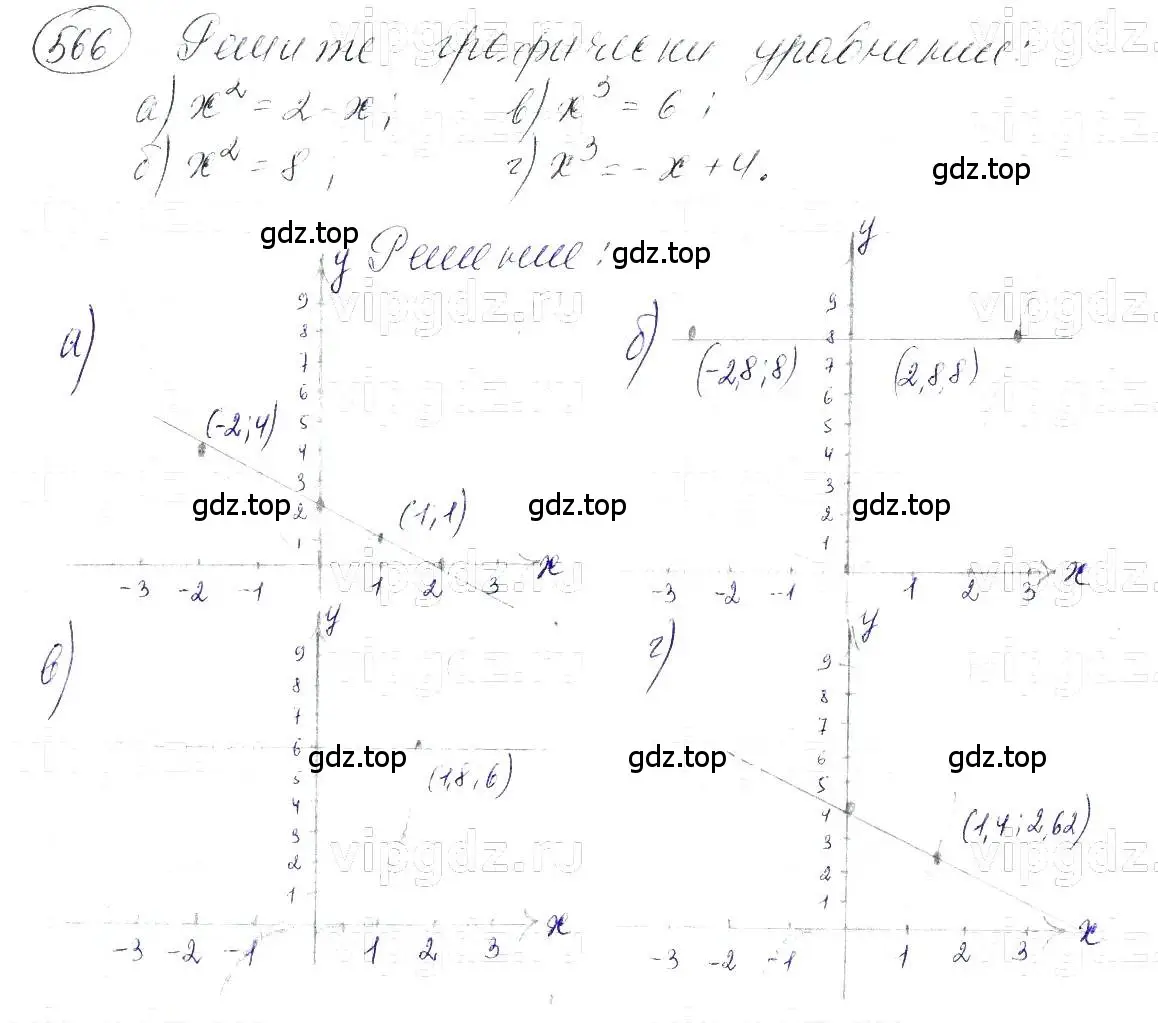 566 Решите графически уравнение:
а) x² = 2 - x; в) x³ = 6;
б) x² = 8; г) x³ = -x + 4.
gdz.top
Решение:
gdz.top gdz.top
а) y
9
8
7
6
5
4
3
2
1
(-2; 4)
(1, 1)
-3 -2 -1 1 2 3 x
gdz.top gdz.top
б) y
9
8
7
6
5
4
3
2
1
(-2,8; 8) (2,8,8)
-3 -2 -1 1 2 3 x
gdz.top
в) y
9
8
7
6
5
4
3
2
1
(1,8, 6)
-3 -2 -1 1 2 3 x
gdz.top
г) y
9
8
7
6
5
4
3
2
1
(1,4; 2,62)
-3 -2 -1 1 2 3 x
gdz.top gdz.top
vipgdz.ru